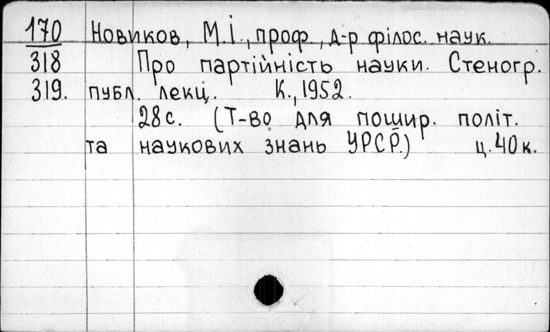 170 Новиков, М.І., проф., д-р філос. наук.
318 Про партійність науки. Стеногр.
319. публ. лекц. К., 1952.
28с. (Т-во для пошир. політ.
та наукових знань УРСР.) ц. 40 к.